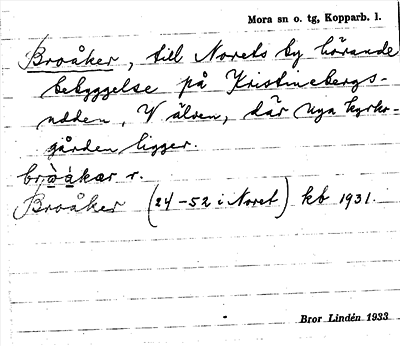 Mora sn o. tg, Kopparb. l.
Broåker, till Norets by hörande
bebyggelse på Kristinebergs-
udden, V älven, där nya kyrko-
gården ligger.
Broåker (24-52 i Noret) kb 1931.
Bror Lindén 1933